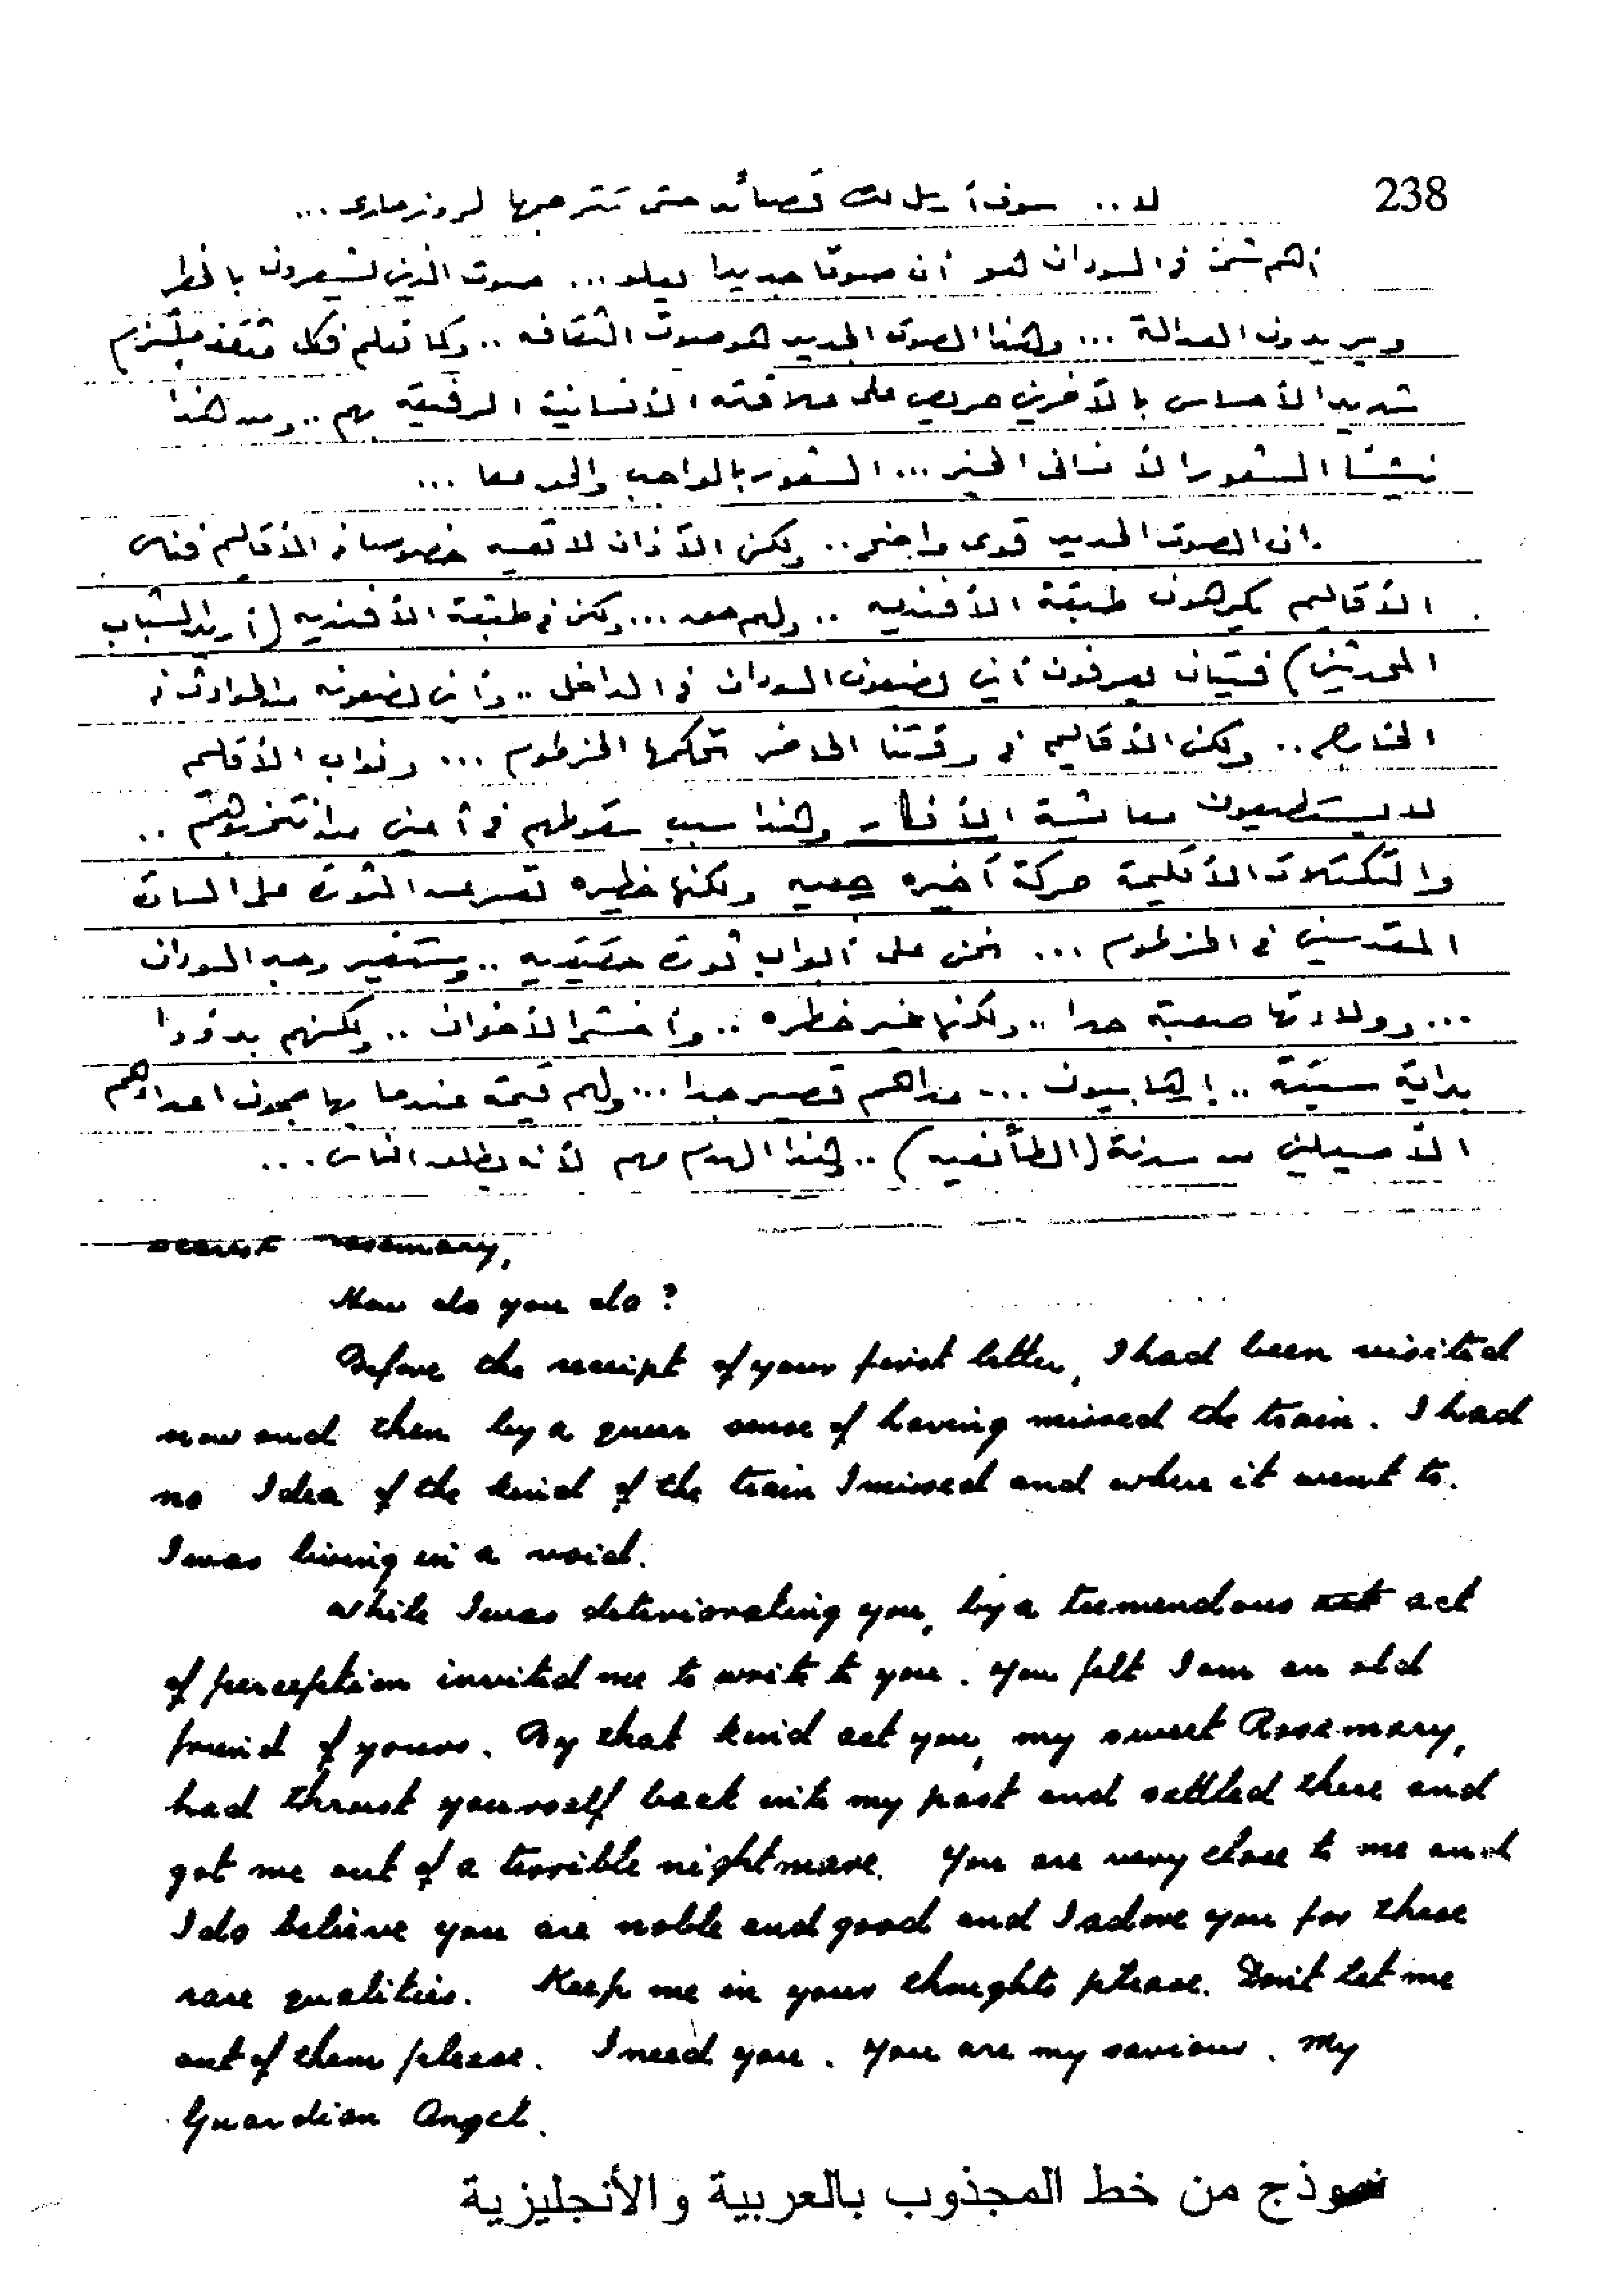 238
لا .. سوف أرسل لك قصائد حتى تترجمها لروزماري ...
أهم شئ في السودان هو أن صوتا جديدا يعلو ... صوت الذين يشعرون بالخطر
ويريدون العدالة ... وهذا الصوت الجديد هو صوت الثقافه .. وكما تعلم فكل مثقف ملتزم
شديد الأحساس بالآخرين حريص على علاقته الأنسانية الرفيعة بهم .. ومن هنا
ينشأ الشعور الأنساني الخير ... الشعور بالواجب والحق معا ...
ان الصوت الجديد قوى واضح .. ولكن الآذان لا تعيه خصوصا في الأقاليم فناس
الأقاليم يكرهون طبقة الأفنديه .. ولهم حق ... ولكن في طبقة الأفنديه (أريد الشباب
المحدثين) فتيان يعرفون أين يضعون السودان في الداخل .. وأين يضعونه من الحوادث في
الخارج .. ولكن الأقاليم في وقتنا الحاضر تحكمها الخرطوم ... ونواب الأقاليم
لا يستطيعون معايشة الأفكار وهذا سبب سقوطهم في أعين من انتخبوهم ..
والتكتلات الأقليمية حركة أخيره ولكنها خطيره تعبر عن الثورة على السادة
المقدسين في الخرطوم ... نحن على أبواب ثورة حقيقيه .. وستغير وجه السودان
... وولادتها صعبة جدا .. ولكنها غير خطره .. وأخشى الأخوان .. ولكنهم بدؤوا
بداية سيئة .. إرهابيون ... مداهم قصير جدا ... ولهم قيمة عندما يهاجمون اعداءهم
الأصيلين من سدنة (الطائفيه) .. هذا الهدم مهم لأنه يطلق الناس ...
Dearest Rosemary,
How do you do?
Before the receipt of your first letter, I had been visited
now and then by a queer sense of having missed the train. I had
no Idea of the kind of the train I missed and where it went to.
I was living in a void.
While I was deteriorating you, by a tremendous act
of perception invited me to write to you. You felt I am an old
friend of yours. By that kind act you, my sweet Rosemary,
had thrust yourself back into my past and settled there and
got me out of a terrible nightmare. You are very close to me and
I do believe you are noble and good and I adore you for these
rare qualities. Keep me in your thoughts please. Don't let me
out of them please. I need you. You are my saviour. My
Guardian Angel.
نموذج من خط المجذوب بالعربية والأنجليزية